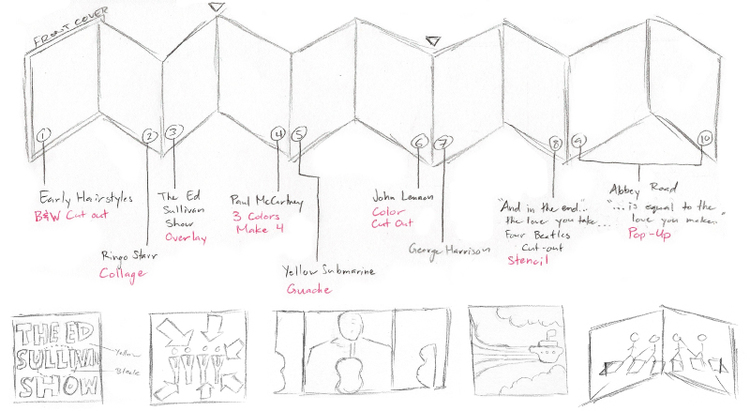 FRONT COVER
1
2
3
4
5
6
7
8
9
10
Early Hairstyles
B&W Cut out
Ringo Starr
Collage
The Ed
Sullivan
Show
Overlay
Paul McCartney
3 Colors
Make 4
Yellow Submarine
Guache
John Lennon
Color
Cut Out
George Harrison
"And in the end...
the love you take...
Four Beatles
Cut-out
Stencil
Abbey Road
"...is equal to the
love you make"
Pop-Up
THE ED
SULLIVAN
SHOW
Yellow
Black